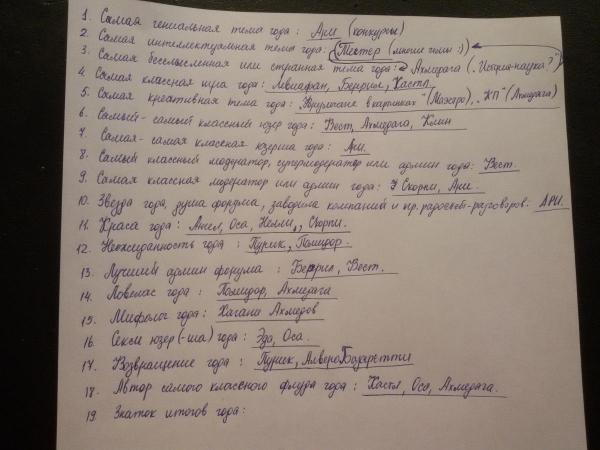 1. Самая гениальная тема года: Ари (конкурсы)
2. Самая интеллектуальная тема года: Тестер (многие темы :))
3. Самая бессмысленная или странная тема года: Ахмедага ("История-наука?")
4. Самая классная игра года: Левиафан, Беррил, Кастл.
5. Самая креативная тема года: в картинках" (Маэстро), "КП" (Ахмедага)
6. Самый-самый классный юзер года: Вест, Ахмедага, Клин
7. Самая-самая классная юзерша года: Ари.
8. Самый классный модератор, супермодератор или админ года: Вест.
9. Самая классная модератор или админ года: Скорпи, Ари.
10. Звезда года, душа форума, заводила компаний и пр. радостей-разговоров: АРИ.
11. Краса года: Ангел, Оса, Нелли, Скорпи.
12. Неожиданность года: Пурик, Помидор.
13. Лучший админ форума: Беррил, Вест.
14. Ловелас года: Помидор, Ахмедага
15. Мифолог года: Хагани Ахмедов
16. Секси юзер(-ша) года: Эда, Оса.
17. Возвращение года: Пурик,
18. Автор самого классного флуда года: Кастл, Оса, Ахмедага.
19. Знаток итогов года: